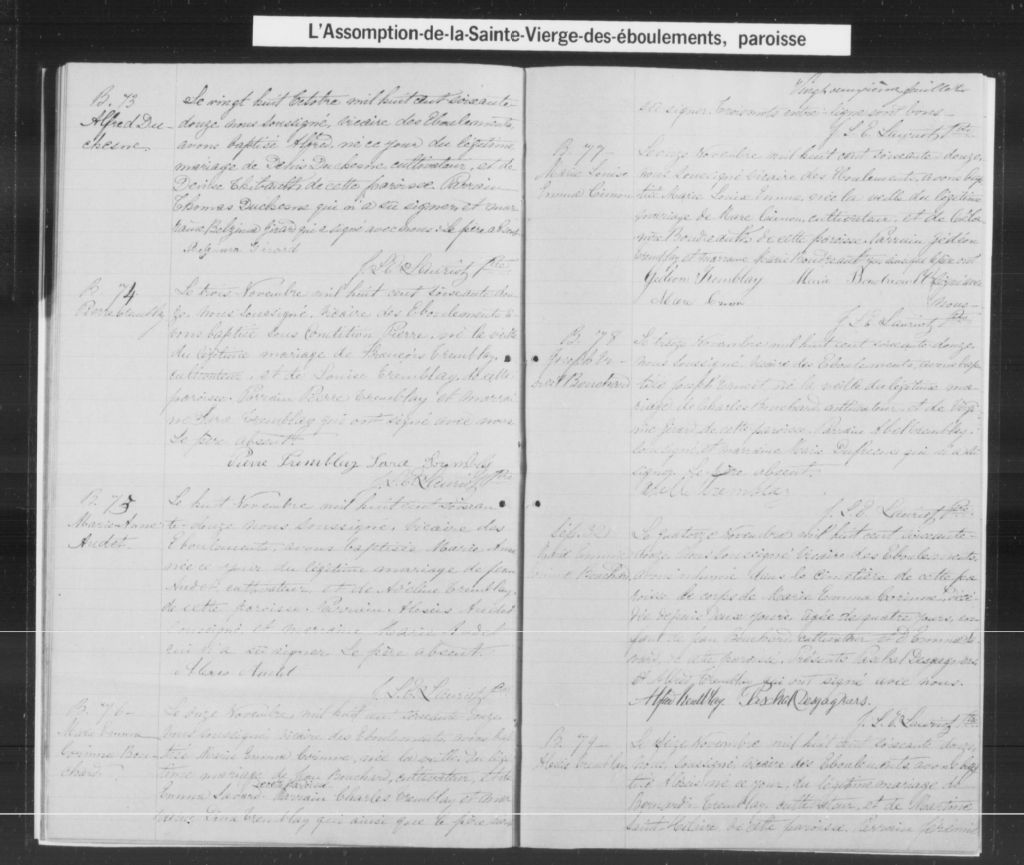 L'Assomption-de-la-Sainte-Vierge-des-éboulements, paroisse
B. 73
Alfred Du-
chesne
Le vingt huit Octobre mil huit cent soixante
douze nous soussigné, vicaire des Eboulements,
avons baptisé Alfred, né ce jour du légitime
mariage de Duchesne cultivateur, et de
de cette paroisse. Parrain
Thomas Duchesne qui n'a su signer et mar
raine Girard qui a signé avec nous. Le père absent
Girard
J. S. E. Ptre
B. 74
Pierre Tremblay
Le trois Novembre mil huit cent soixante dou
ze, nous soussigné, vicaire des Eboulements a
vons baptisé sous condition Pierre, né la veille
du légitime mariage de François Tremblay,
cultivateur, et de Louise Tremblay, de cette
paroisse. Parrain Pierre Tremblay et marrai
ne Tremblay qui ont signé avec nous
Le père absent
Pierre Tremblay
J. S. E. Ptre
B. 75
Marie Anne
Audet
Le huit Novembre mil huit cent soixan
te douze nous soussigné, vicaire des
Eboulements, avons baptisée Marie Anne
née ce jour du légitime mariage de Jean
Audet, cultivateur et de Adeline Tremblay
de cette paroisse. Parrain Audet
soussigné, et marraine Marie Audet
qui n'a su signer. Le père absent.
Audet
J. S. E. Ptre
B. 76
Marie Emma
Corinne Bou
chard
Le onze Novembre mil huit cent soixante douze
nous soussigné vicaire des Eboulements, avons bap
tisé Marie Emma Corinne, née la veille, du légi
time mariage de Jean Bouchard, cultivateur, et de
Emma Parrain Charles Tremblay et mar
raine Tremblay qui ainsi que le père
feuillet
su signer. Trois mots entre-ligne sont bons
J. S. E. Ptre
B. 77
Marie Louise
Emma Cimon
Le onze Novembre mil huit cent soixante douze,
nous soussigné vicaire des Eboulements, avons bap
tisé Marie Louise Emma, née la veille du légitime
mariage de Marc Cimon, cultivateur, et de
Boudreault de cette paroisse. Parrain Gédéon
Tremblay et marraine Marie Boudreault qui ainsi que le père ont
Gédéon Tremblay Marie Boudreault signé avec
nous
Cimon
J. S. E. Ptre
B. 78
Joseph
Bouchard
Le treize Novembre mil huit cent soixante douze
nous soussigné, vicaire des Eboulements, avons bap
tisé Joseph né la veille du légitime ma
riage de Charles Bouchard, cultivateur, et de
Girard de cette paroisse. Parrain Abel Tremblay
soussigné et marraine Marie Dufresne qui n'a su
signer. Le père absent.
Abel Tremblay
J. S. E. Ptre
Marie Emma
Corinne Bouchard
Le quatorze Novembre mil huit cent soixante
douze nous soussigné vicaire des Eboulements
avons inhumé dans le cimetière de cette pa
roisse le corps de Marie Emma Corinne, décé
dée depuis deux jours, agée de quatre jours, en
fant de Jean Bouchard, cultivateur et d'Emma
de cette paroisse. Présents Desgagners
et Tremblay qui ont signé avec nous.
Tremblay Desgagners.
J. S. E. Ptre
B. 79
Tremblay
Le seize Novembre mil huit cent soixante douze,
nous, soussigné, vicaire des Eboulements avons bap
tisé né ce jour, du légitime mariage de
Tremblay, cultivateur, et de Martine
Saint-Hilaire de cette paroisse. Parrain Jérémie